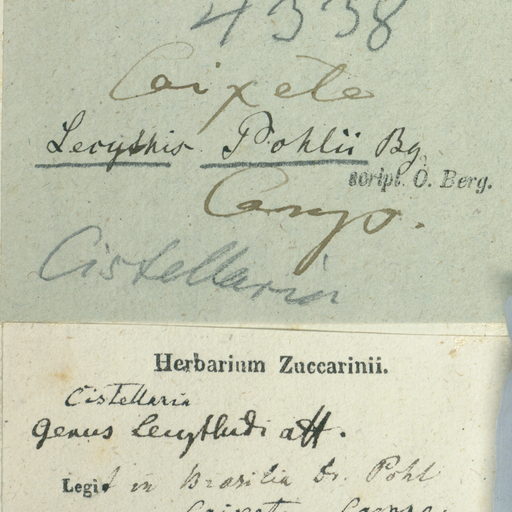 4338
Caixete
Lecythis Pohlii Bg
script. O. Berg.
Campo.
Cistellaria
Herbarium Zuccarinii.
Cistellaria
Genus Lecythidi aff.
Legit in Brasilia Dr. Pohl